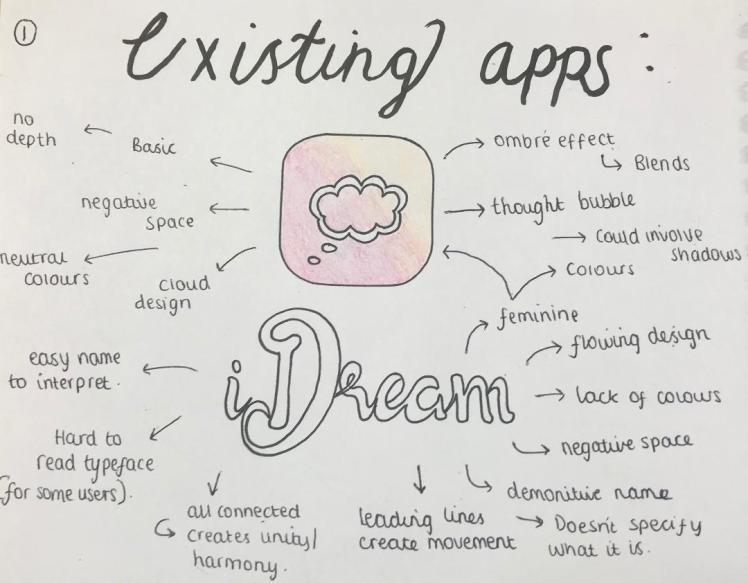 1
existing apps:
no
depth
Basic
negative
space
neutral
colours
cloud
design
ombré effect
Blends
thought bubble
could involve
shadows
colours
feminine
iDream
easy name
to interpret.
Hard to
read typeface
(for some users).
all connected
creates unity/
harmony.
leading lines
create movement
flowing design
lack of colours
negative space
demonitive name
Doesn't specify
what it is.